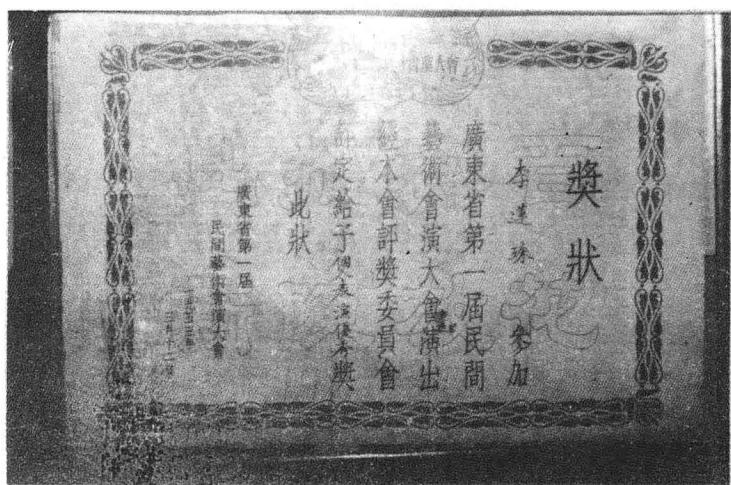 獎狀
李蓮珠 參加
廣東省第一屆民間
藝術會演大會演出
經本會評獎委員會
評定給予個人表演優秀獎
此狀
廣東省第一屆
民間藝術會演大會
三月十二日